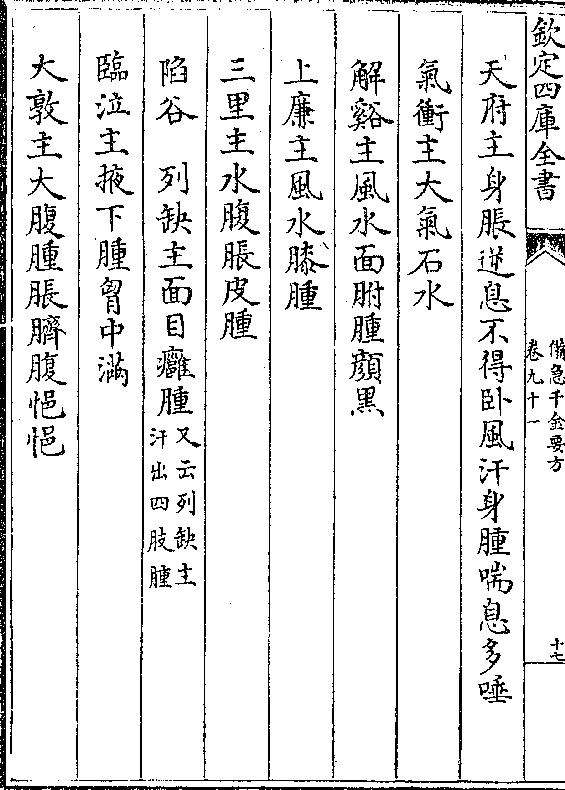 欽定四庫全書
備急千金要方
卷九十一
十七
天府主身脹逆息不得卧風汗身腫喘息多唾
氣衝主大氣石水
解谿主風水面胕腫顔黒
上廉主風水膝腫
三里主水腹脹皮腫
陷谷　列缺主面目癰腫又云列缺主汗出四肢腫
臨泣主掖下腫胷中滿
大敦主大腹腫脹臍腹悒悒